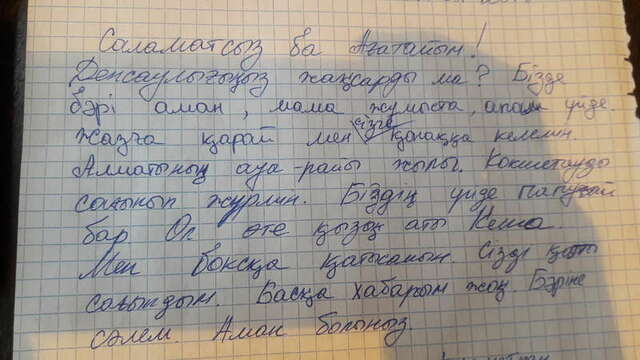 Саламатсыз ба Ағатайым!
Денсаулығыңыз жақсарды ма? Бізде
бәрі аман, мама жұмыста, апам үйде.
жазға қарай мен сізге қонаққа келемін.
Алматының ауа-райы жылы. Кокшетауды
сағынып жүрмін. Біздің үйде папугай
бар. Ол өте қызық аты Кеша.
Мен боксқа қатысамын. Сізді қатты
сағындым. Басқа хабарым жоқ. Бәріне
сәлем. Аман болыңыз.